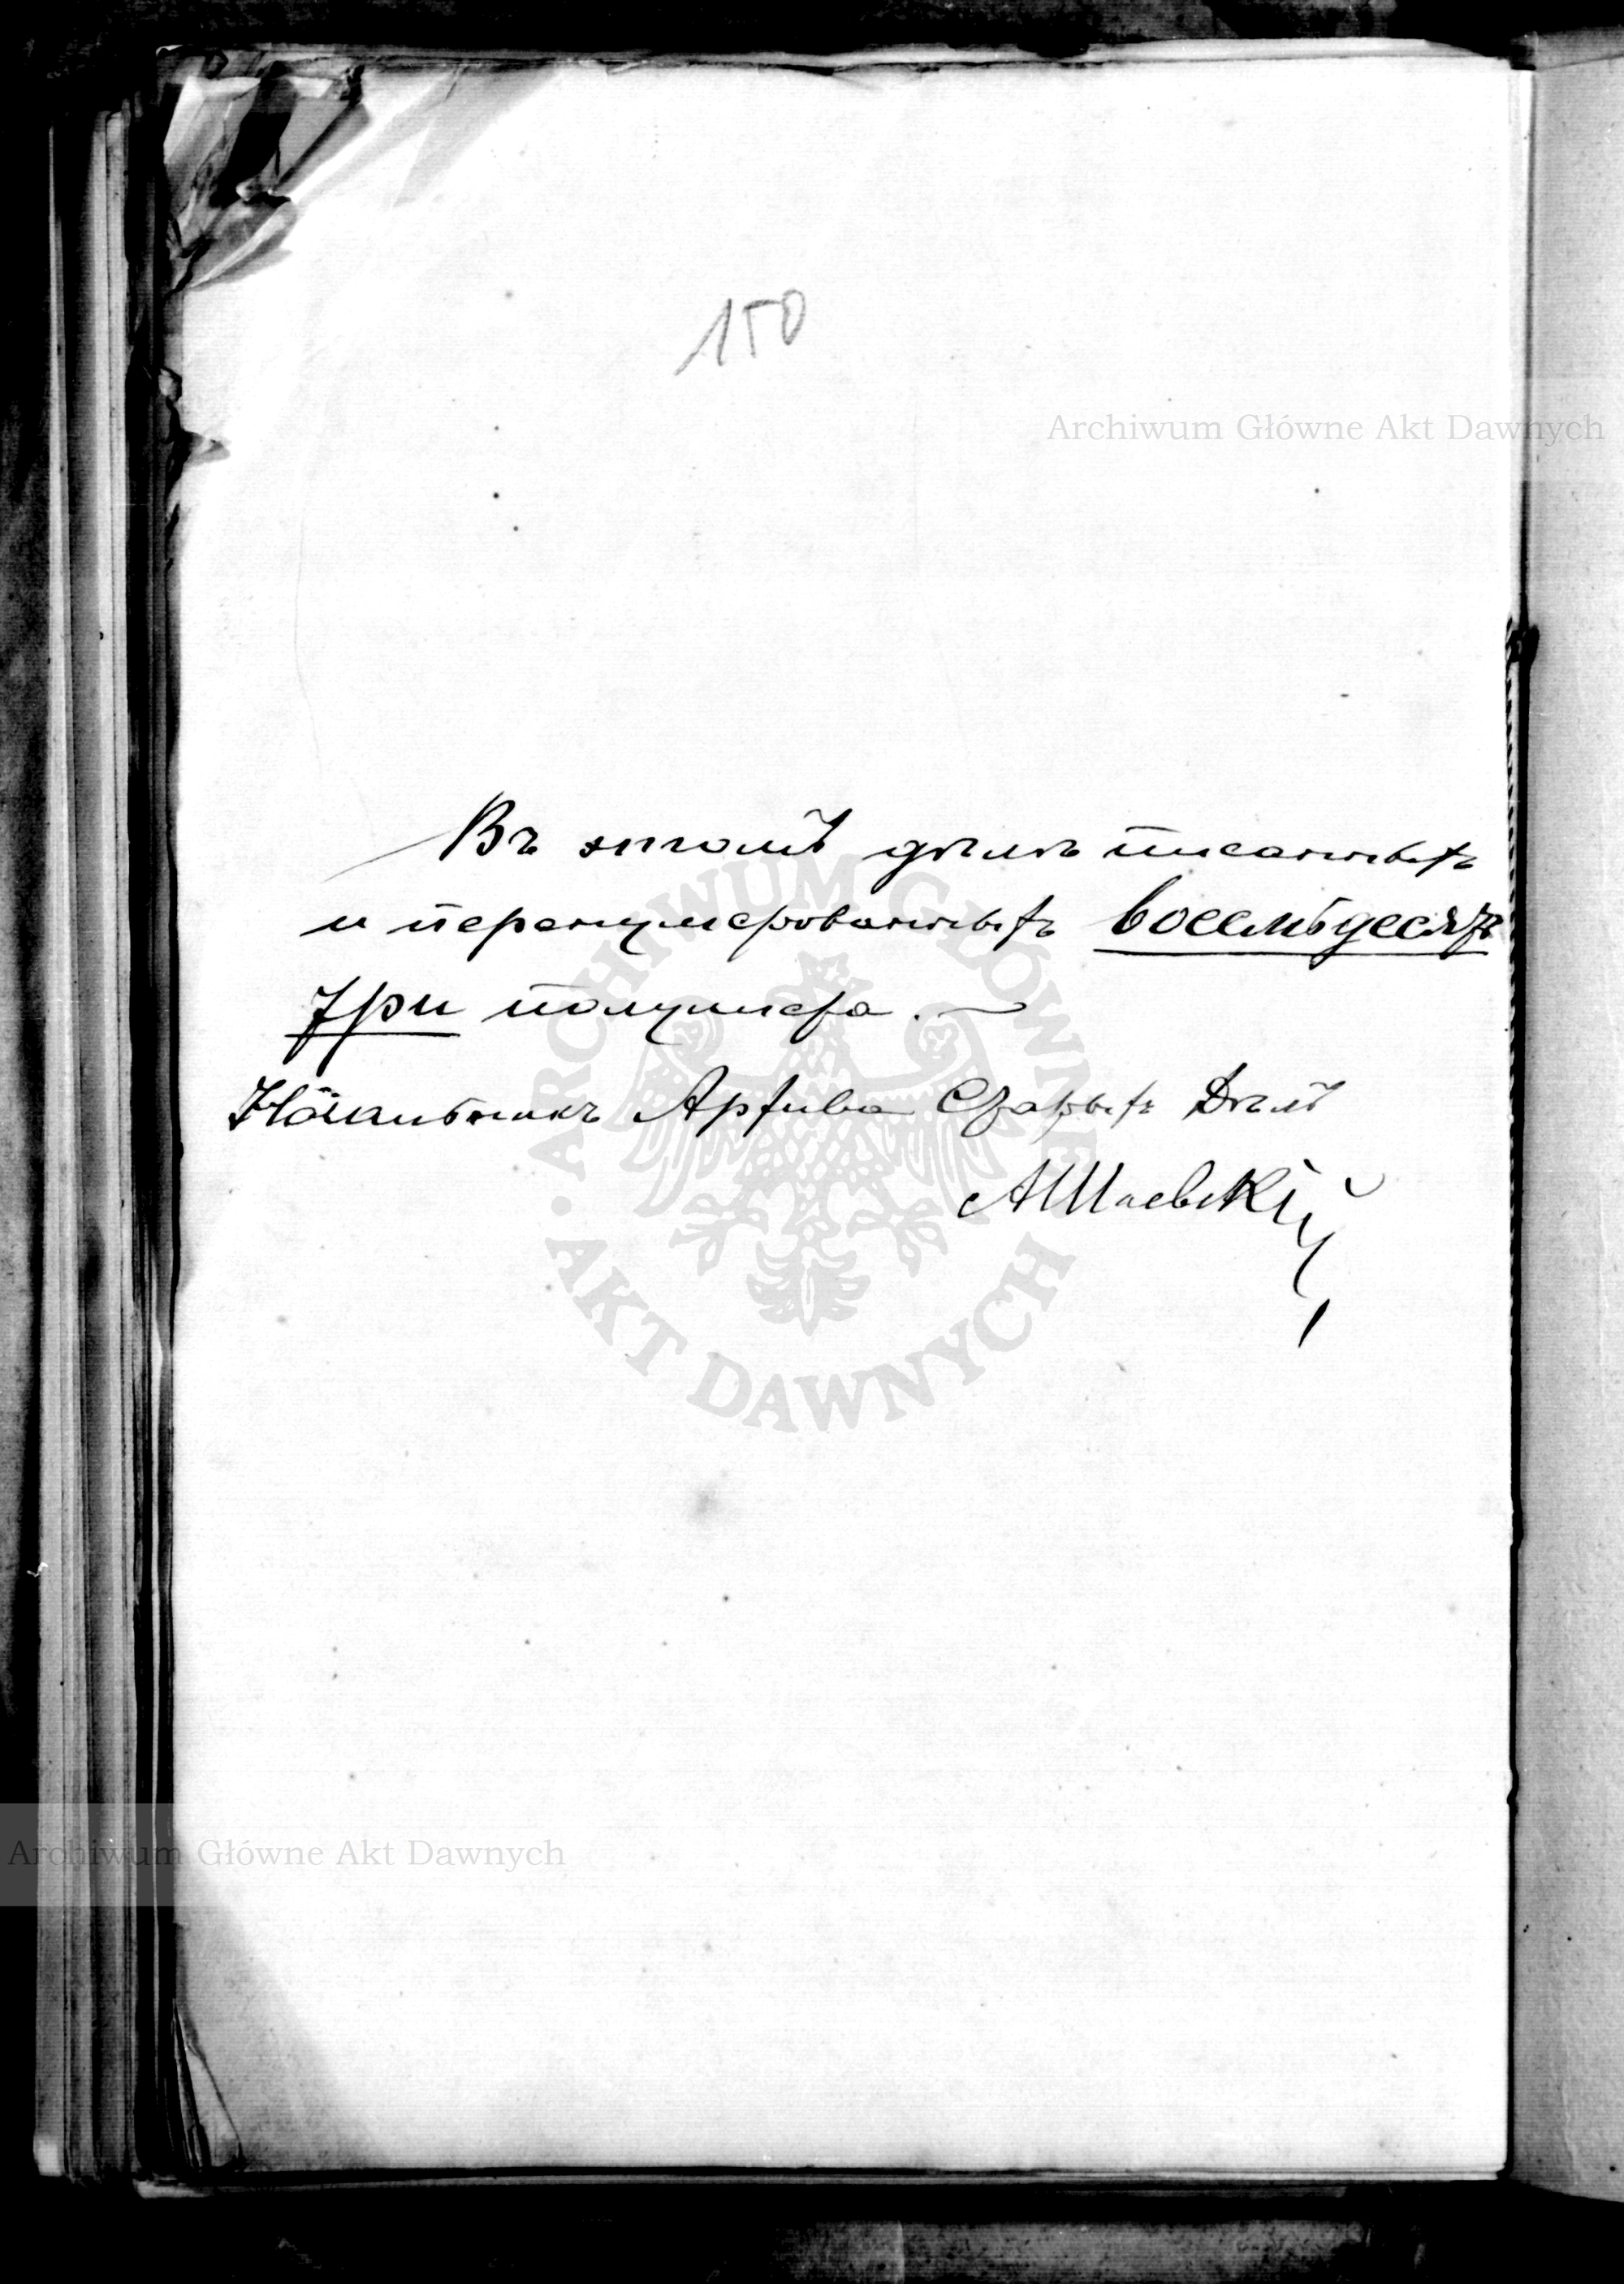 150
Archiwum Główne Akt Dawnych
Въ этомъ дѣлѣ писанныхъ
и перенумерованныхъ восемьдесятъ
три полулиста.
Начальникъ Архива Старыхъ Дѣлъ
ARCHIWUM GŁÓWNE
AKT DAWNYCH
Archiwum Główne Akt Dawnych